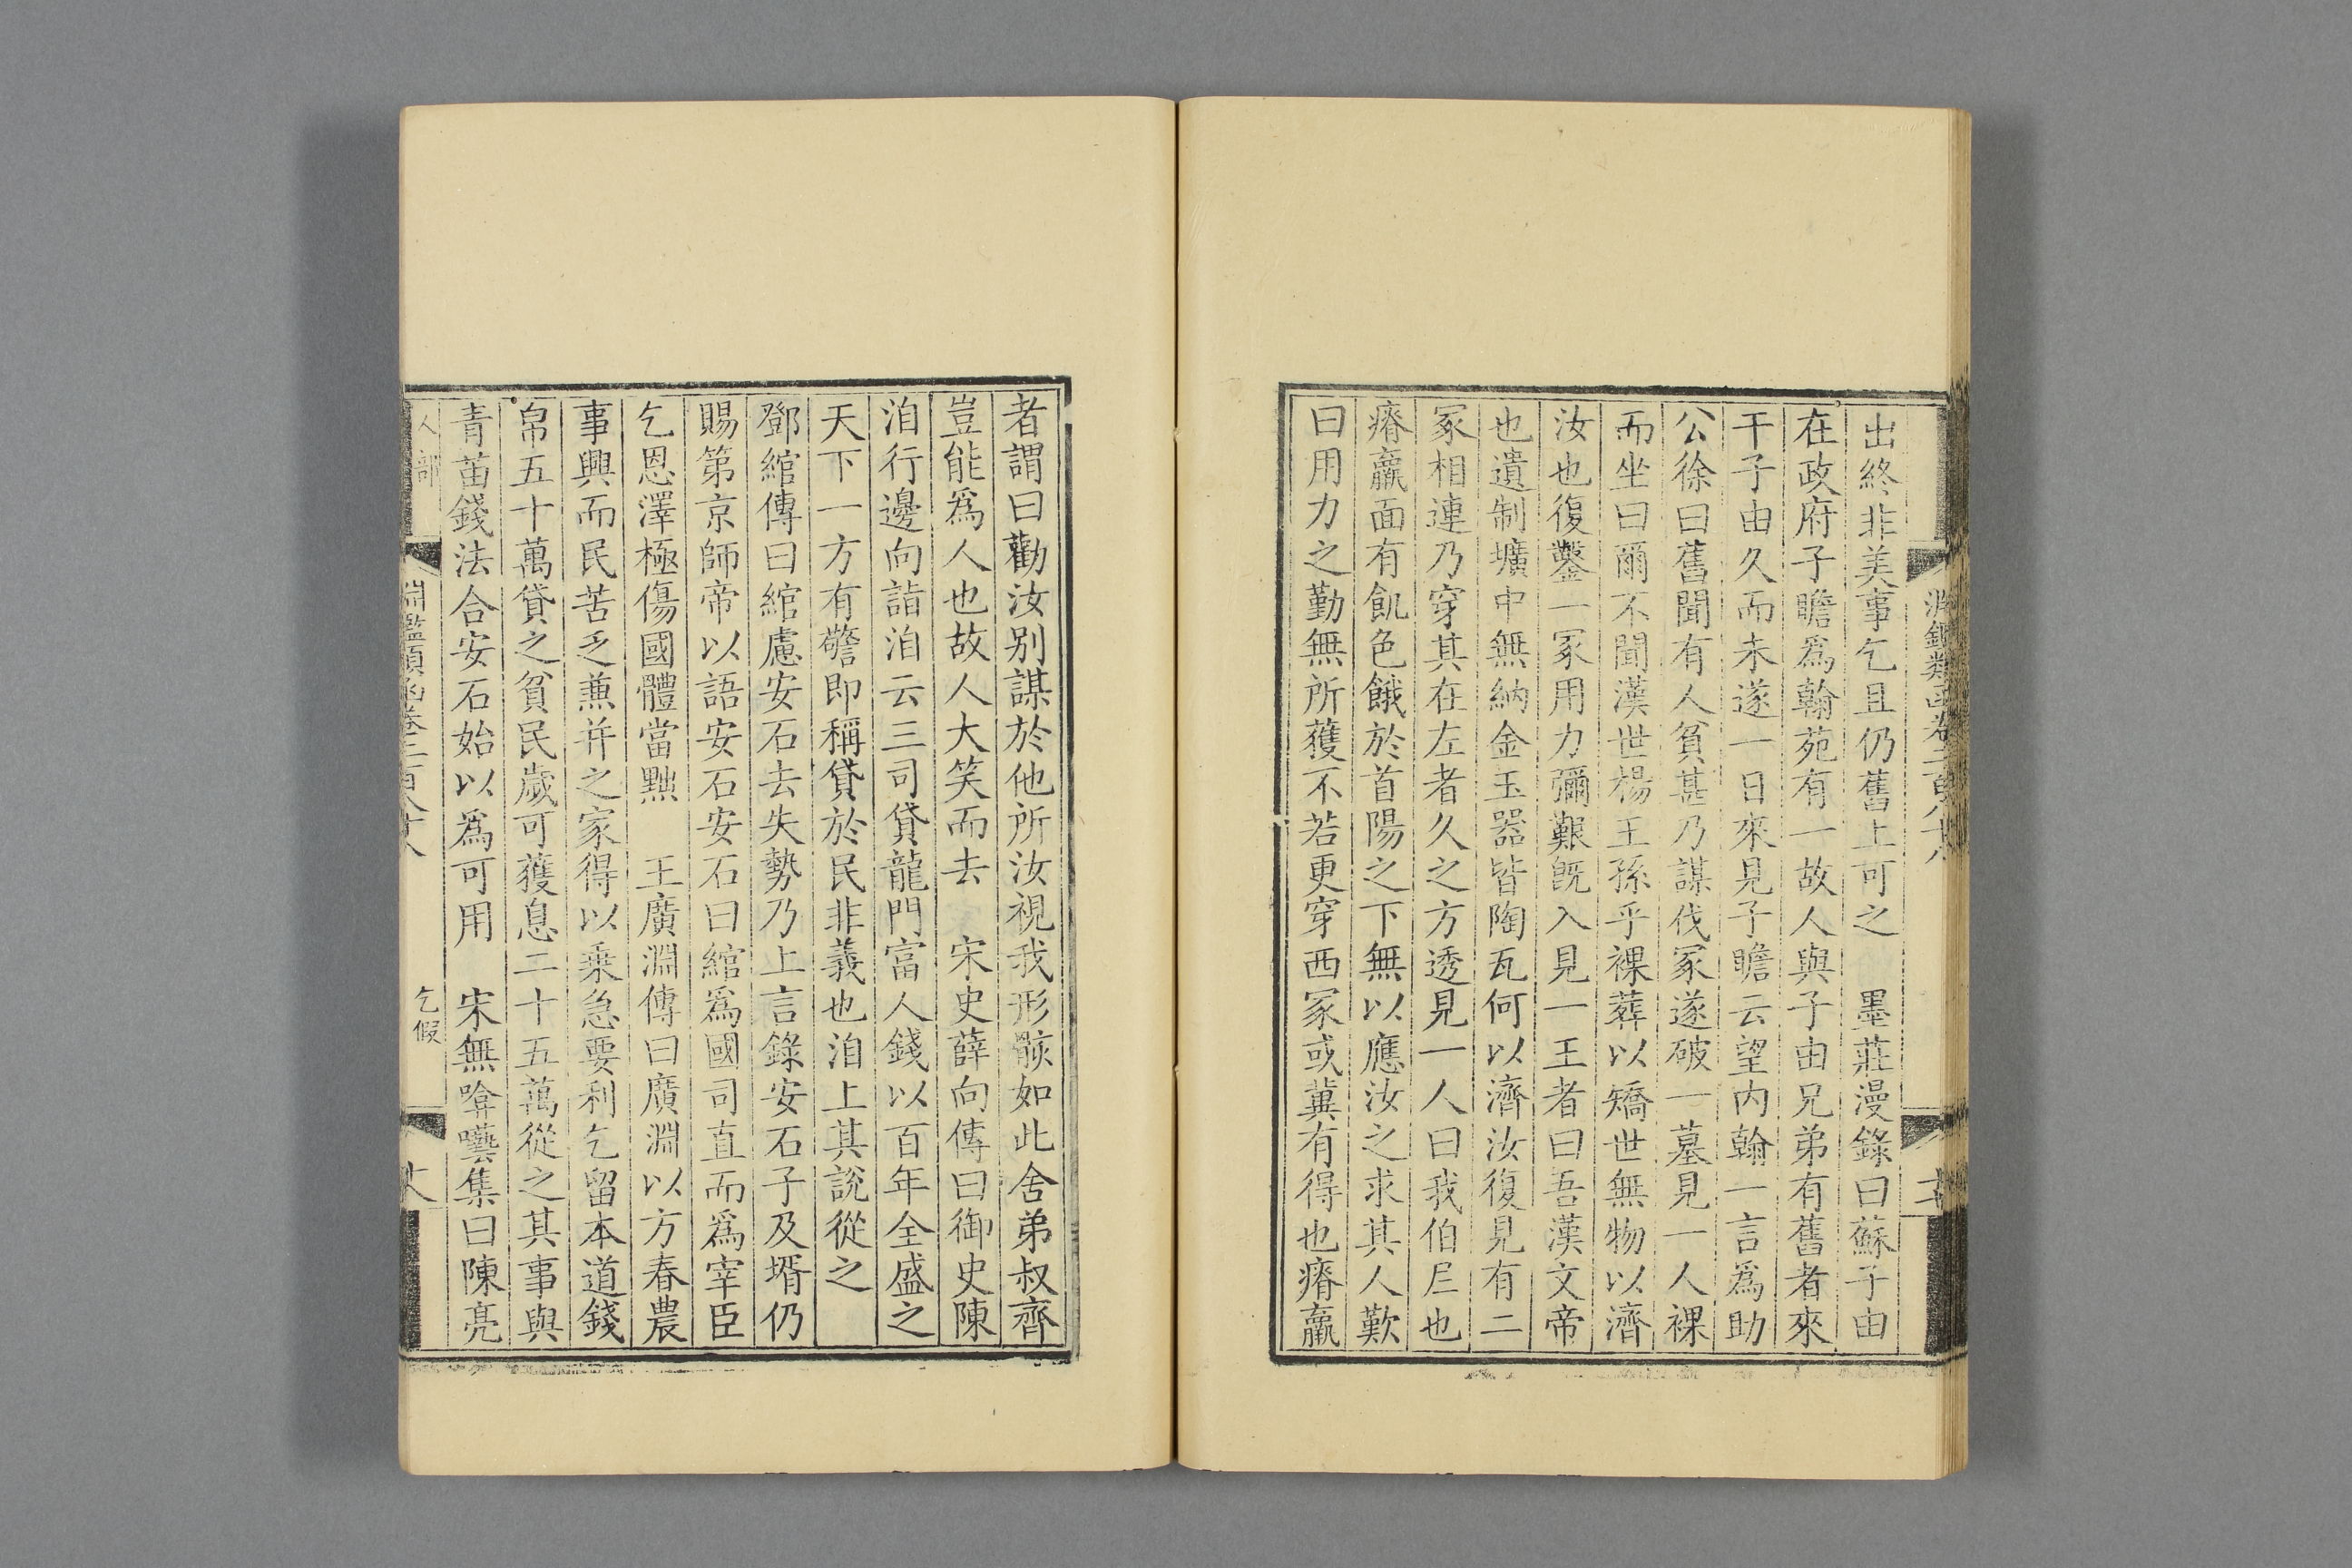 淵鑑類函卷二百八十八
出終非美事乞且仍舊上可之　墨莊漫錄曰蘇子由
在政府子瞻爲翰苑有一故人與子由兄弟有舊者來
干子由久而未遂一日來見子瞻云望內翰一言爲助
公徐曰舊聞有人貧甚乃謀伐冢遂破一墓見一人裸
而坐曰爾不聞漢世楊王孫乎裸葬以矯世無物以濟
汝也復鑿一冢用力彌艱旣入見一王者曰吾漢文帝
也遺制壙中無納金玉器皆陶瓦何以濟汝復見有二
冢相連乃穿其在左者久之方透見一人曰我伯夷也
瘠羸面有飢色餓於首陽之下無以應汝之求其人歎
曰用力之勤無所獲不若更穿西冢或冀有得也瘠羸
者謂曰勸汝別謀於他所汝視我形骸如此舍弟叔齊
豈能爲人也故人大笑而去　宋史薛向傳曰御史陳
洎行邊向詣洎云三司貸龍門富人錢以百年全盛之
天下一方有警即稱貸於民非義也洎上其說從之
鄧綰傳曰綰慮安石去失勢乃上言錄安石子及壻仍
賜第京師帝以語安石安石曰綰爲國司直而爲宰臣
乞恩澤極傷國體當黜　王廣淵傳曰廣淵以方春農
事興而民苦乏兼并之家得以乘急要利乞留本道錢
帛五十萬貸之貧民歲可獲息二十五萬從之其事與
青苗錢法合安石始以爲可用　宋無啽囈集曰陳亮
人部
淵鑑類函卷二百八十八
乞假